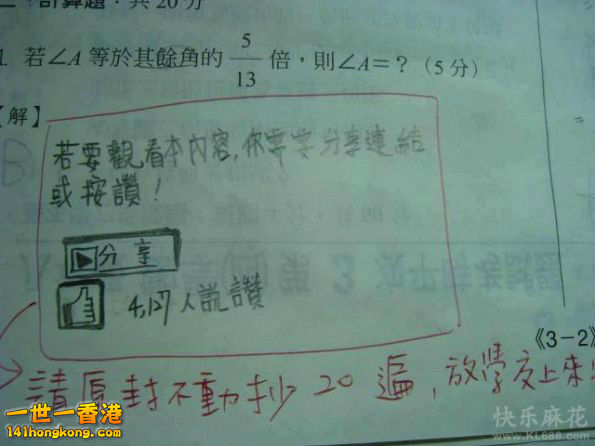 二、計算題：共 20 分
1. 若∠A 等於其餘角的 5/13 倍，則∠A＝？（5 分）
【解】
若要觀看本內容,你需要分享連結
或按讚!
分享
4,127人說讚
《3－2》
請原封不動抄20遍,放學交上來
一世一香港
141hongkong.com
快乐麻花